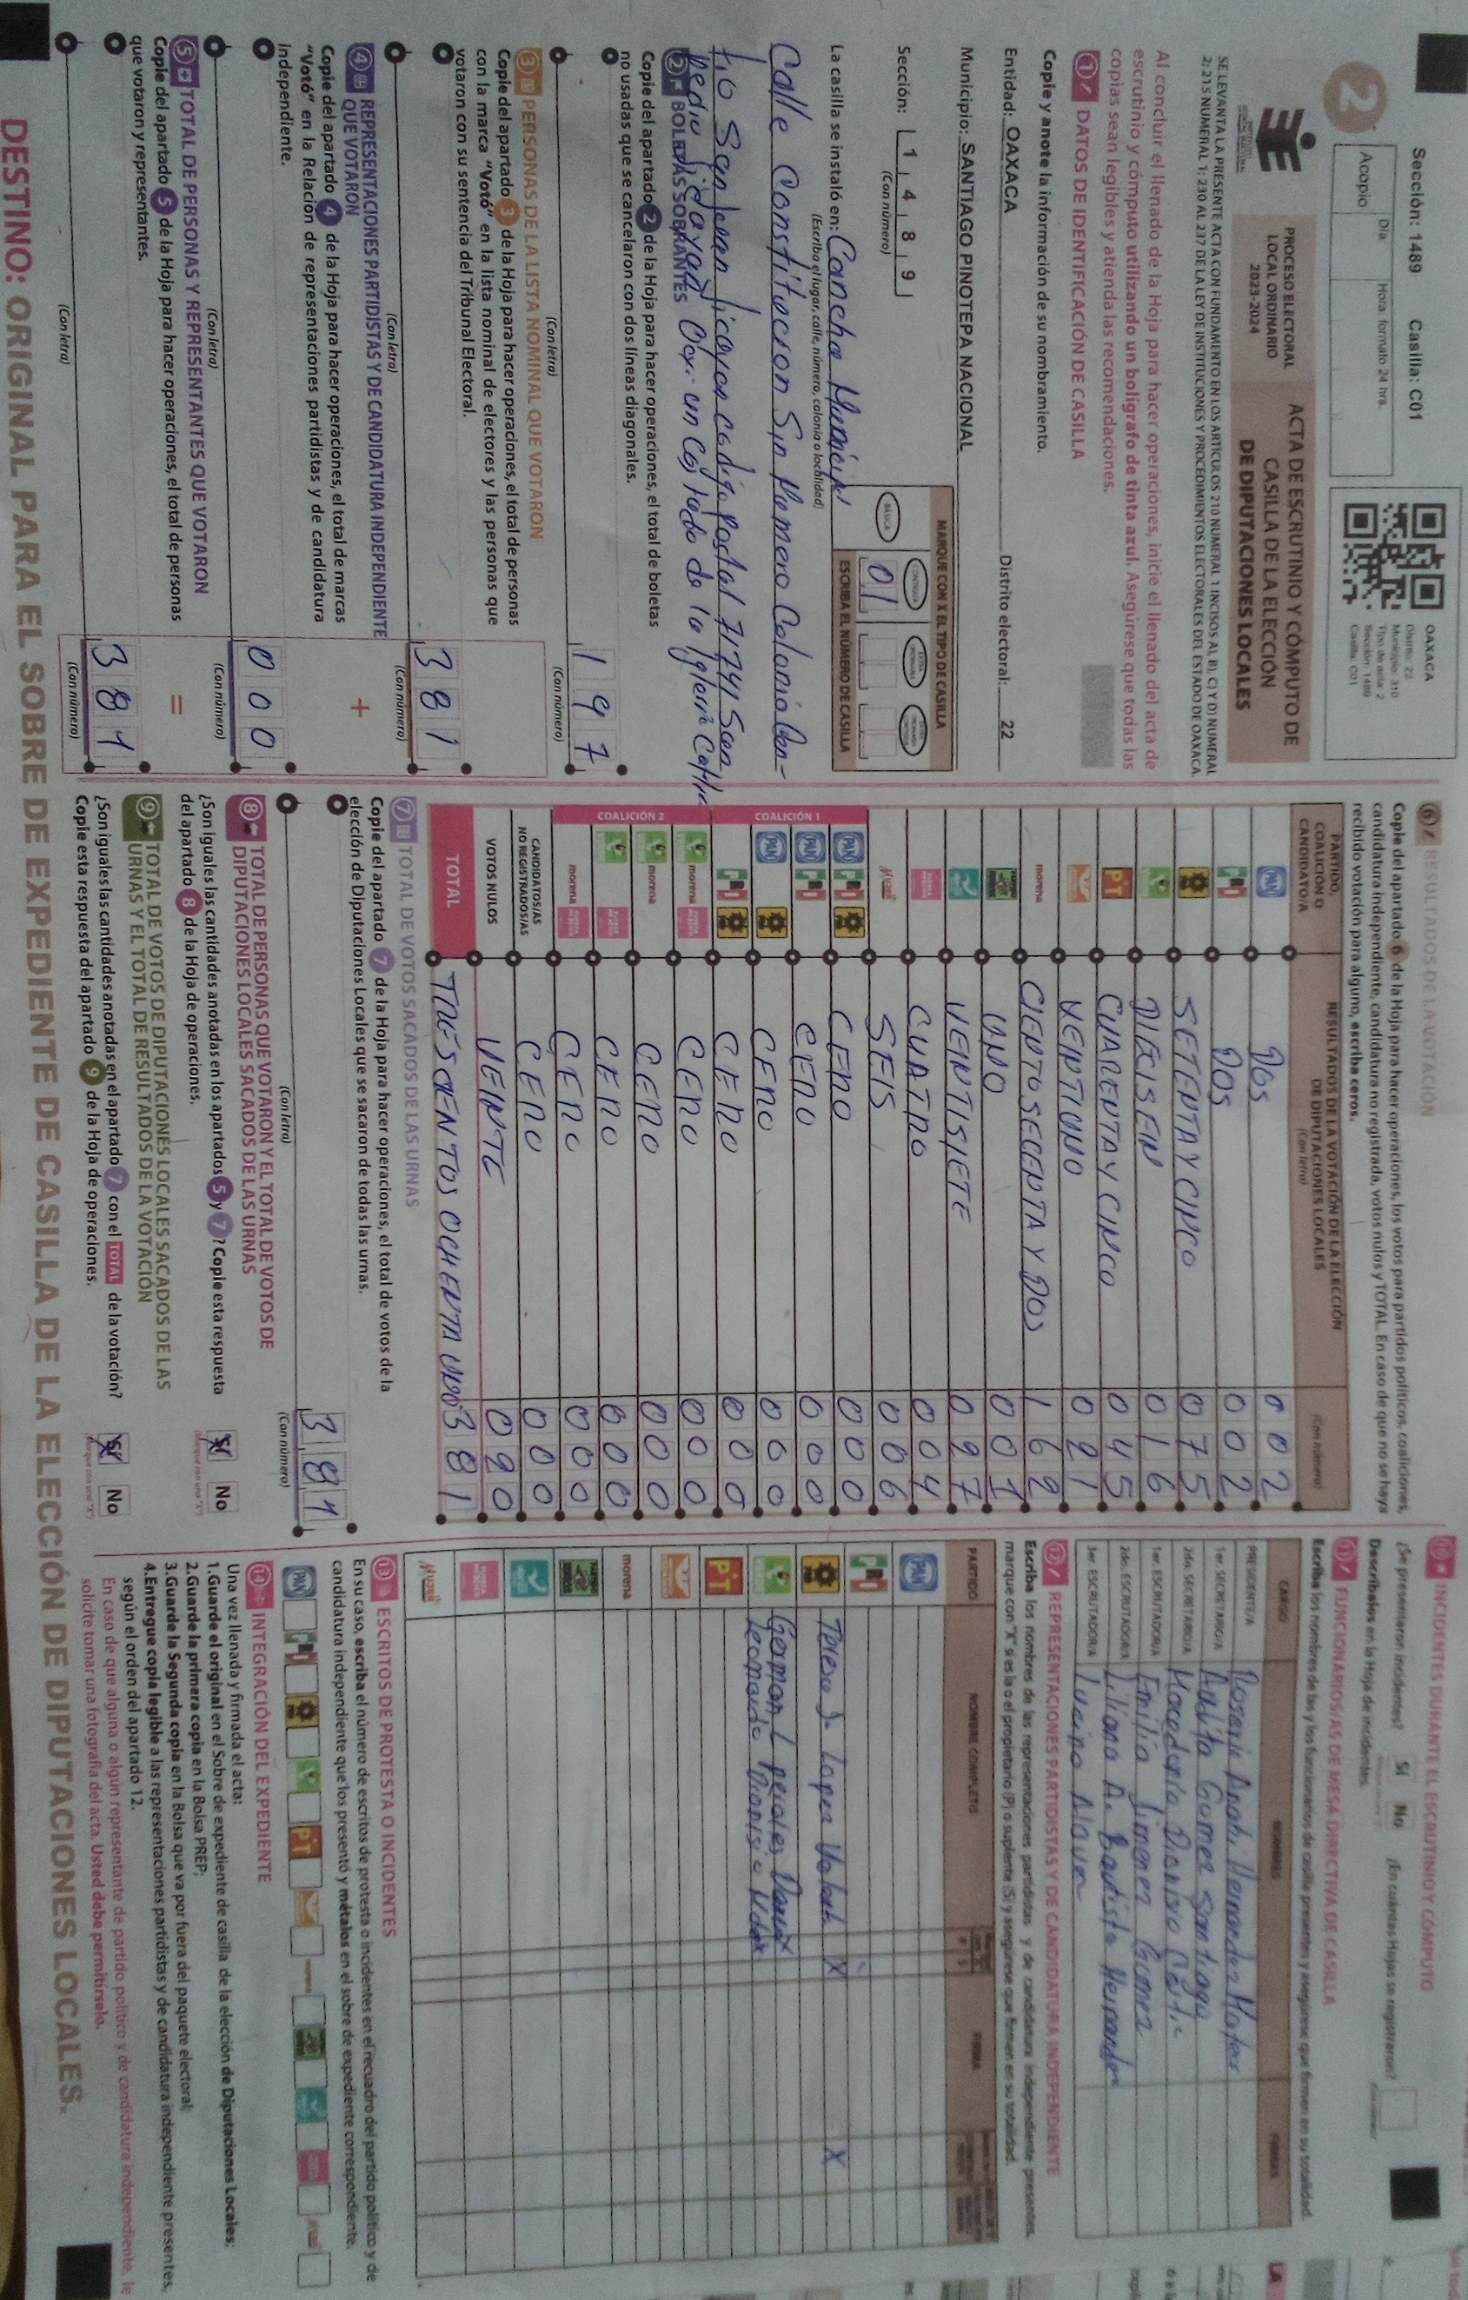 Sección: 1489 Casilla: C01
2
Día Hora: formato 24 hrs.
Acopio
OAXACA
Distrito: 22
Municipio: 310
Tipo de acta: 2
Sección: 1489
Casilla: C01
PROCESO ELECTORAL
LOCAL ORDINARIO
2023-2024
ACTA DE ESCRUTINIO Y CÓMPUTO DE
CASILLA DE LA ELECCIÓN
DE DIPUTACIONES LOCALES
SE LEVANTA LA PRESENTE ACTA CON FUNDAMENTO EN LOS ARTÍCULOS 210 NUMERAL 1 INCISOS A), B), C) Y D) NUMERAL
2; 215 NUMERAL 1; 230 AL 237 DE LA LEY DE INSTITUCIONES Y PROCEDIMIENTOS ELECTORALES DEL ESTADO DE OAXACA.
Al concluir el llenado de la Hoja para hacer operaciones, inicie el llenado del acta de
escrutinio y cómputo utilizando un bolígrafo de tinta azul. Asegúrese que todas las
copias sean legibles y atienda las recomendaciones.
1 DATOS DE IDENTIFICACIÓN DE CASILLA
Copie y anote la información de su nombramiento.
Entidad: OAXACA Distrito electoral: 22
Municipio: SANTIAGO PINOTEPA NACIONAL
Sección: 1 4 8 9
(Con número)
MARQUE CON X EL TIPO DE CASILLA
BÁSICA
01
ESCRIBA EL NÚMERO DE CASILLA
La casilla se instaló en: Cancha Municipal
(Escriba el lugar, calle, número, colonia o localidad)
Calle Constitucion Sin Numero Colonia Cen-
tro
2 BOLETAS SOBRANTES
Copie del apartado 2 de la Hoja para hacer operaciones, el total de boletas
no usadas que se cancelaron con dos líneas diagonales.
197
(Con letra) (Con número)
3 PERSONAS DE LA LISTA NOMINAL QUE VOTARON
Copie del apartado 3 de la Hoja para hacer operaciones, el total de personas
con la marca "Votó" en la lista nominal de electores y las personas que
votaron con su sentencia del Tribunal Electoral.
381
(Con letra) (Con número)
4 REPRESENTACIONES PARTIDISTAS Y DE CANDIDATURA INDEPENDIENTE
QUE VOTARON
+
Copie del apartado 4 de la Hoja para hacer operaciones, el total de marcas
"Votó" en la Relación de representaciones partidistas y de candidatura
independiente.
000
(Con letra) (Con número)
5 TOTAL DE PERSONAS Y REPRESENTANTES QUE VOTARON
=
Copie del apartado 5 de la Hoja para hacer operaciones, el total de personas
que votaron y representantes.
381
(Con letra) (Con número)
6 RESULTADOS DE LA VOTACIÓN
Copie del apartado 6 de la Hoja para hacer operaciones, los votos para partidos políticos, coaliciones,
candidatura independiente, candidatura no registrada, votos nulos y TOTAL. En caso de que no se haya
recibido votación para alguno, escriba ceros.
PARTIDO,
COALICIÓN O
CANDIDATO/A
RESULTADOS DE LA VOTACIÓN DE LA ELECCIÓN
DE DIPUTACIONES LOCALES
(Con letra) (Con número)
PAN DOS 002
PRI DOS 002
SETENTA Y CINCO 075
DIECISEIS 016
PT CUARENTA Y CINCO 045
VEINTIUNO 021
morena CIENTO SECENTA Y DOS 162
UNO 001
VEINTISIETE 027
CUATRO 004
SEIS 006
COALICIÓN 1
PAN PRI CERO 000
PAN PRI CERO 000
PAN CERO 000
PRI CERO 000
COALICIÓN 2
morena CERO 000
morena CERO 000
CERO 000
morena CERO 000
CANDIDATOS/AS
NO REGISTRADOS/AS CERO 000
VOTOS NULOS VEINTE 020
TOTAL TRESCIENTOS OCHENTA UNO 381
7 TOTAL DE VOTOS SACADOS DE LAS URNAS
Copie del apartado 7 de la Hoja para hacer operaciones, el total de votos de la
elección de Diputaciones Locales que se sacaron de todas las urnas.
381
(Con letra) (Con número)
8 TOTAL DE PERSONAS QUE VOTARON Y EL TOTAL DE VOTOS DE
DIPUTACIONES LOCALES SACADOS DE LAS URNAS
¿Son iguales las cantidades anotadas en los apartados 5 y 7? Copie esta respuesta
del apartado 8 de la Hoja de operaciones.
Sí No
9 TOTAL DE VOTOS DE DIPUTACIONES LOCALES SACADOS DE LAS
URNAS Y EL TOTAL DE RESULTADOS DE LA VOTACIÓN
¿Son iguales las cantidades anotadas en el apartado 7 con el TOTAL de la votación?
Copie esta respuesta del apartado 9 de la Hoja de operaciones.
Sí No
10 INCIDENTES DURANTE EL ESCRUTINIO Y CÓMPUTO
¿Se presentaron incidentes? Sí No ¿En cuántas Hojas se registraron?
Descríbalos en la Hoja de incidentes.
11 FUNCIONARIOS/AS DE MESA DIRECTIVA DE CASILLA
Escriba los nombres de las y los funcionarios de casilla presentes y asegúrese que firmen en su totalidad.
CARGO NOMBRES FIRMAS
PRESIDENTE/A Anahi Hernandez Mateos
1er. SECRETARIO/A Adelita Gomez Santiago
2do. SECRETARIO/A Dionisio
1er. ESCRUTADOR/A Emilia Jimenez Gomez
2do. ESCRUTADOR/A Liliana A. Bautista Hernandez
3er. ESCRUTADOR/A
12 REPRESENTACIONES PARTIDISTAS Y DE CANDIDATURA INDEPENDIENTE
Escriba los nombres de las representaciones partidistas y de candidatura independiente presentes,
marque con "X" si es la o el propietario (P) o suplente (S) y asegúrese que firmen en su totalidad.
PARTIDO NOMBRE COMPLETO FIRMA
PAN
PRI
X X
PT
morena
13 ESCRITOS DE PROTESTA O INCIDENTES
En su caso, escriba el número de escritos de protesta o incidentes en el recuadro del partido político y de
candidatura independiente que los presentó y métalos en el sobre de expediente correspondiente.
PAN PRI PT
14 INTEGRACIÓN DEL EXPEDIENTE
Una vez llenada y firmada el acta:
1. Guarde el original en el Sobre de expediente de casilla de la elección de Diputaciones Locales;
2. Guarde la primera copia en la Bolsa PREP;
3. Guarde la Segunda copia en la Bolsa que va por fuera del paquete electoral;
4. Entregue copia legible a las representaciones partidistas y de candidatura independiente presentes,
según el orden del apartado 12.
En caso de que alguna o algún representante de partido político y de candidatura independiente, le
solicite tomar una fotografía del acta. Usted debe permitírselo.
DESTINO: ORIGINAL PARA EL SOBRE DE EXPEDIENTE DE CASILLA DE LA ELECCIÓN DE DIPUTACIONES LOCALES.